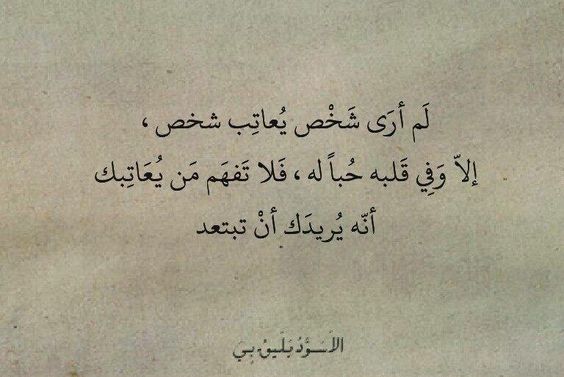 لَم أرَى شَخْص يُعاتِب شخص ،
إلاّ وَفِي قَلبه حُباً له ، فَلا تَفهَم مَن يُعَاتِبك
أنّه يُريدَك أنْ تبتعد
الأسوَد يَليق بي